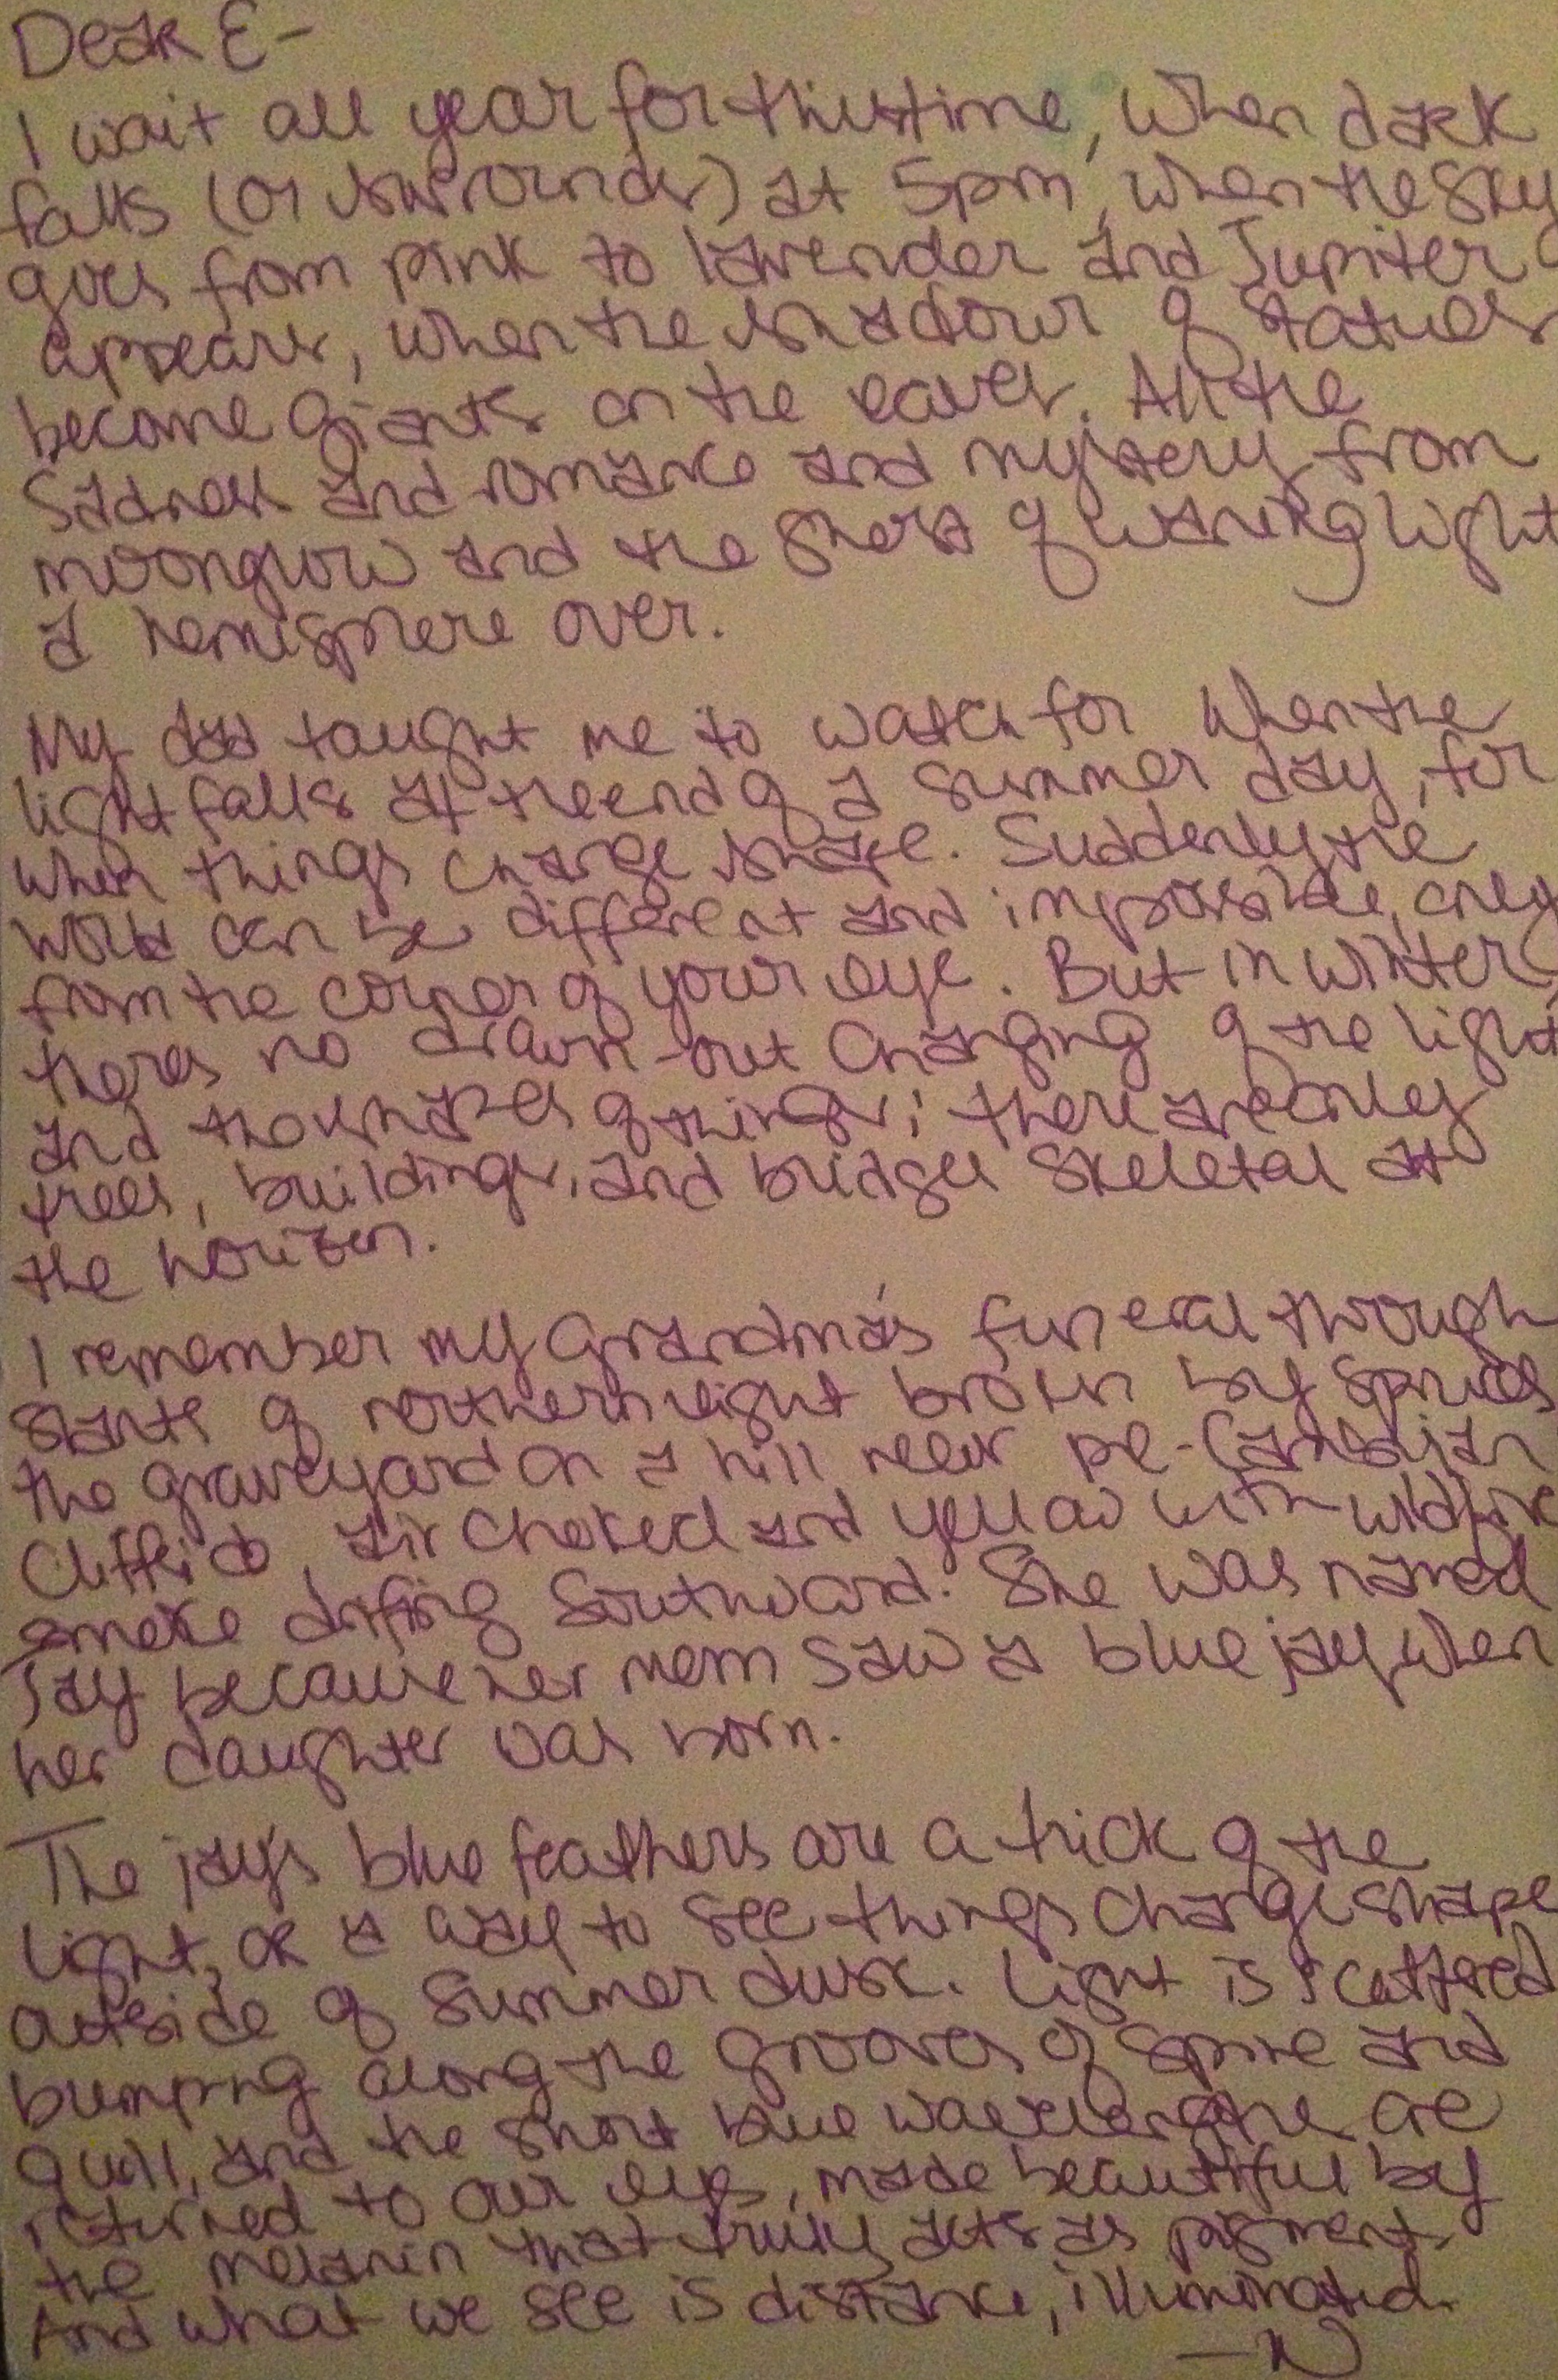 Dear E-
I wait all year for this time, when dark
falls (or surrounds) at 5pm, when the sky
goes from pink to lavender and Jupiter
appears, when the shadows of statues
become giants on the eaves. All the
sadness and romance and mystery from
moonglow and the ghost of waning light
a hemisphere over.
My dad taught me to watch for when the
light falls at the end of a summer day, for
when things change shape. Suddenly the
world can be different and impossible, only
from the corner of your eye. But in winter,
theres no drawn-out changing of the light
and the shapes of things; there are only
trees, buildings, and bridges skeletal at
the horizon.
I remember my grandma's funeral through
slants of northern light broken by spruces
the graveyard on a hill near pre-Cambrian
cliffside, air choked and yellow with wildfire
smoke drifting southward. She was named
Jay because her mom saw a blue jay when
her daughter was born.
The jay's blue feathers are a trick of the
light, or a way to see things change shape
outside of summer dusk. Light is scattered
bumping along the grooves of spine and
quill, and the short blue wavelengths are
returned to our eyes, made beautiful by
the melanin that truly acts as pigment.
And what we see is distance, illuminated.
-N